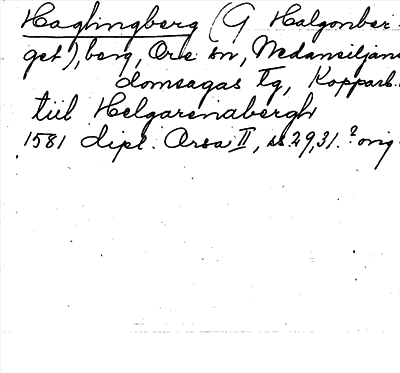 Haglingberg (G Halgonber-
get), berg, Ore sn, Nedansiljans
domsagas tg, Kopparb.
till Helgarenabergh
1581 dipl. Orsa II, s. 29, 31. ? orig.